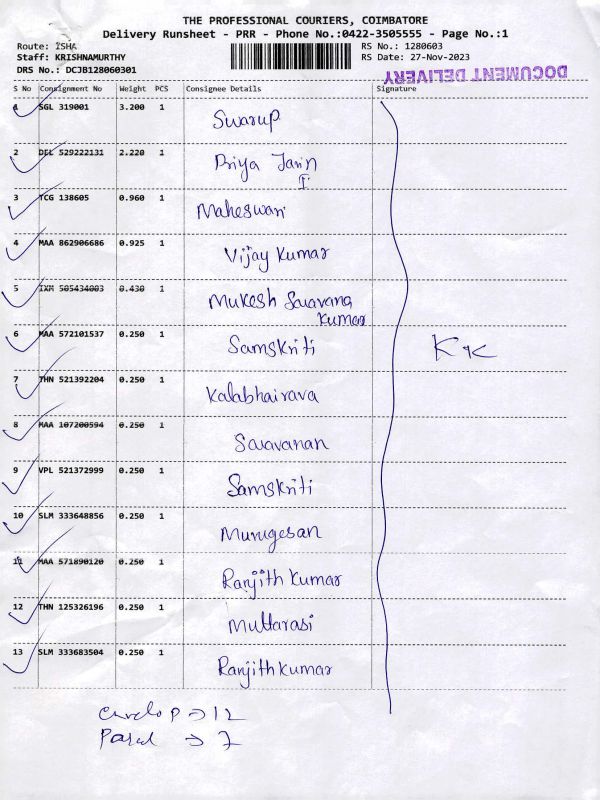 THE PROFESSIONAL COURIERS, COIMBATORE
Delivery Runsheet - PRR - Phone No.:0422-3505555 - Page No.:1
Route: ISHA
Staff: KRISHNAMURTHY
DRS No.: DCJB128060301
RS No.: 1280603
RS Date: 27-Nov-2023
DOCUMENT DELIVERY
S No Consignment No Weight PCS Consignee Details Signature
1 SGL 319001 3.200 1 Swarup
2 DEL 529222131 2.220 1 Priya Jain
I
3 TCG 138605 0.960 1 Maheswari
4 MAA 862906686 0.925 1 Vijay Kumar
5 IXM 505434003 0.430 1 Mukesh Saravana
Kumar
6 MAA 572101537 0.250 1 Samskriti
KK
7 THN 521392204 0.250 1 Kalabhairava
8 MAA 107200594 0.250 1 Saravanan
9 VPL 521372999 0.250 1 Samskriti
10 SLM 333648856 0.250 1 Murugesan
11 MAA 571890120 0.250 1 Ranjith Kumar
12 THN 125326196 0.250 1 Muttarasi
13 SLM 333683504 0.250 1 Ranjith Kumar
→ 12
→ 7